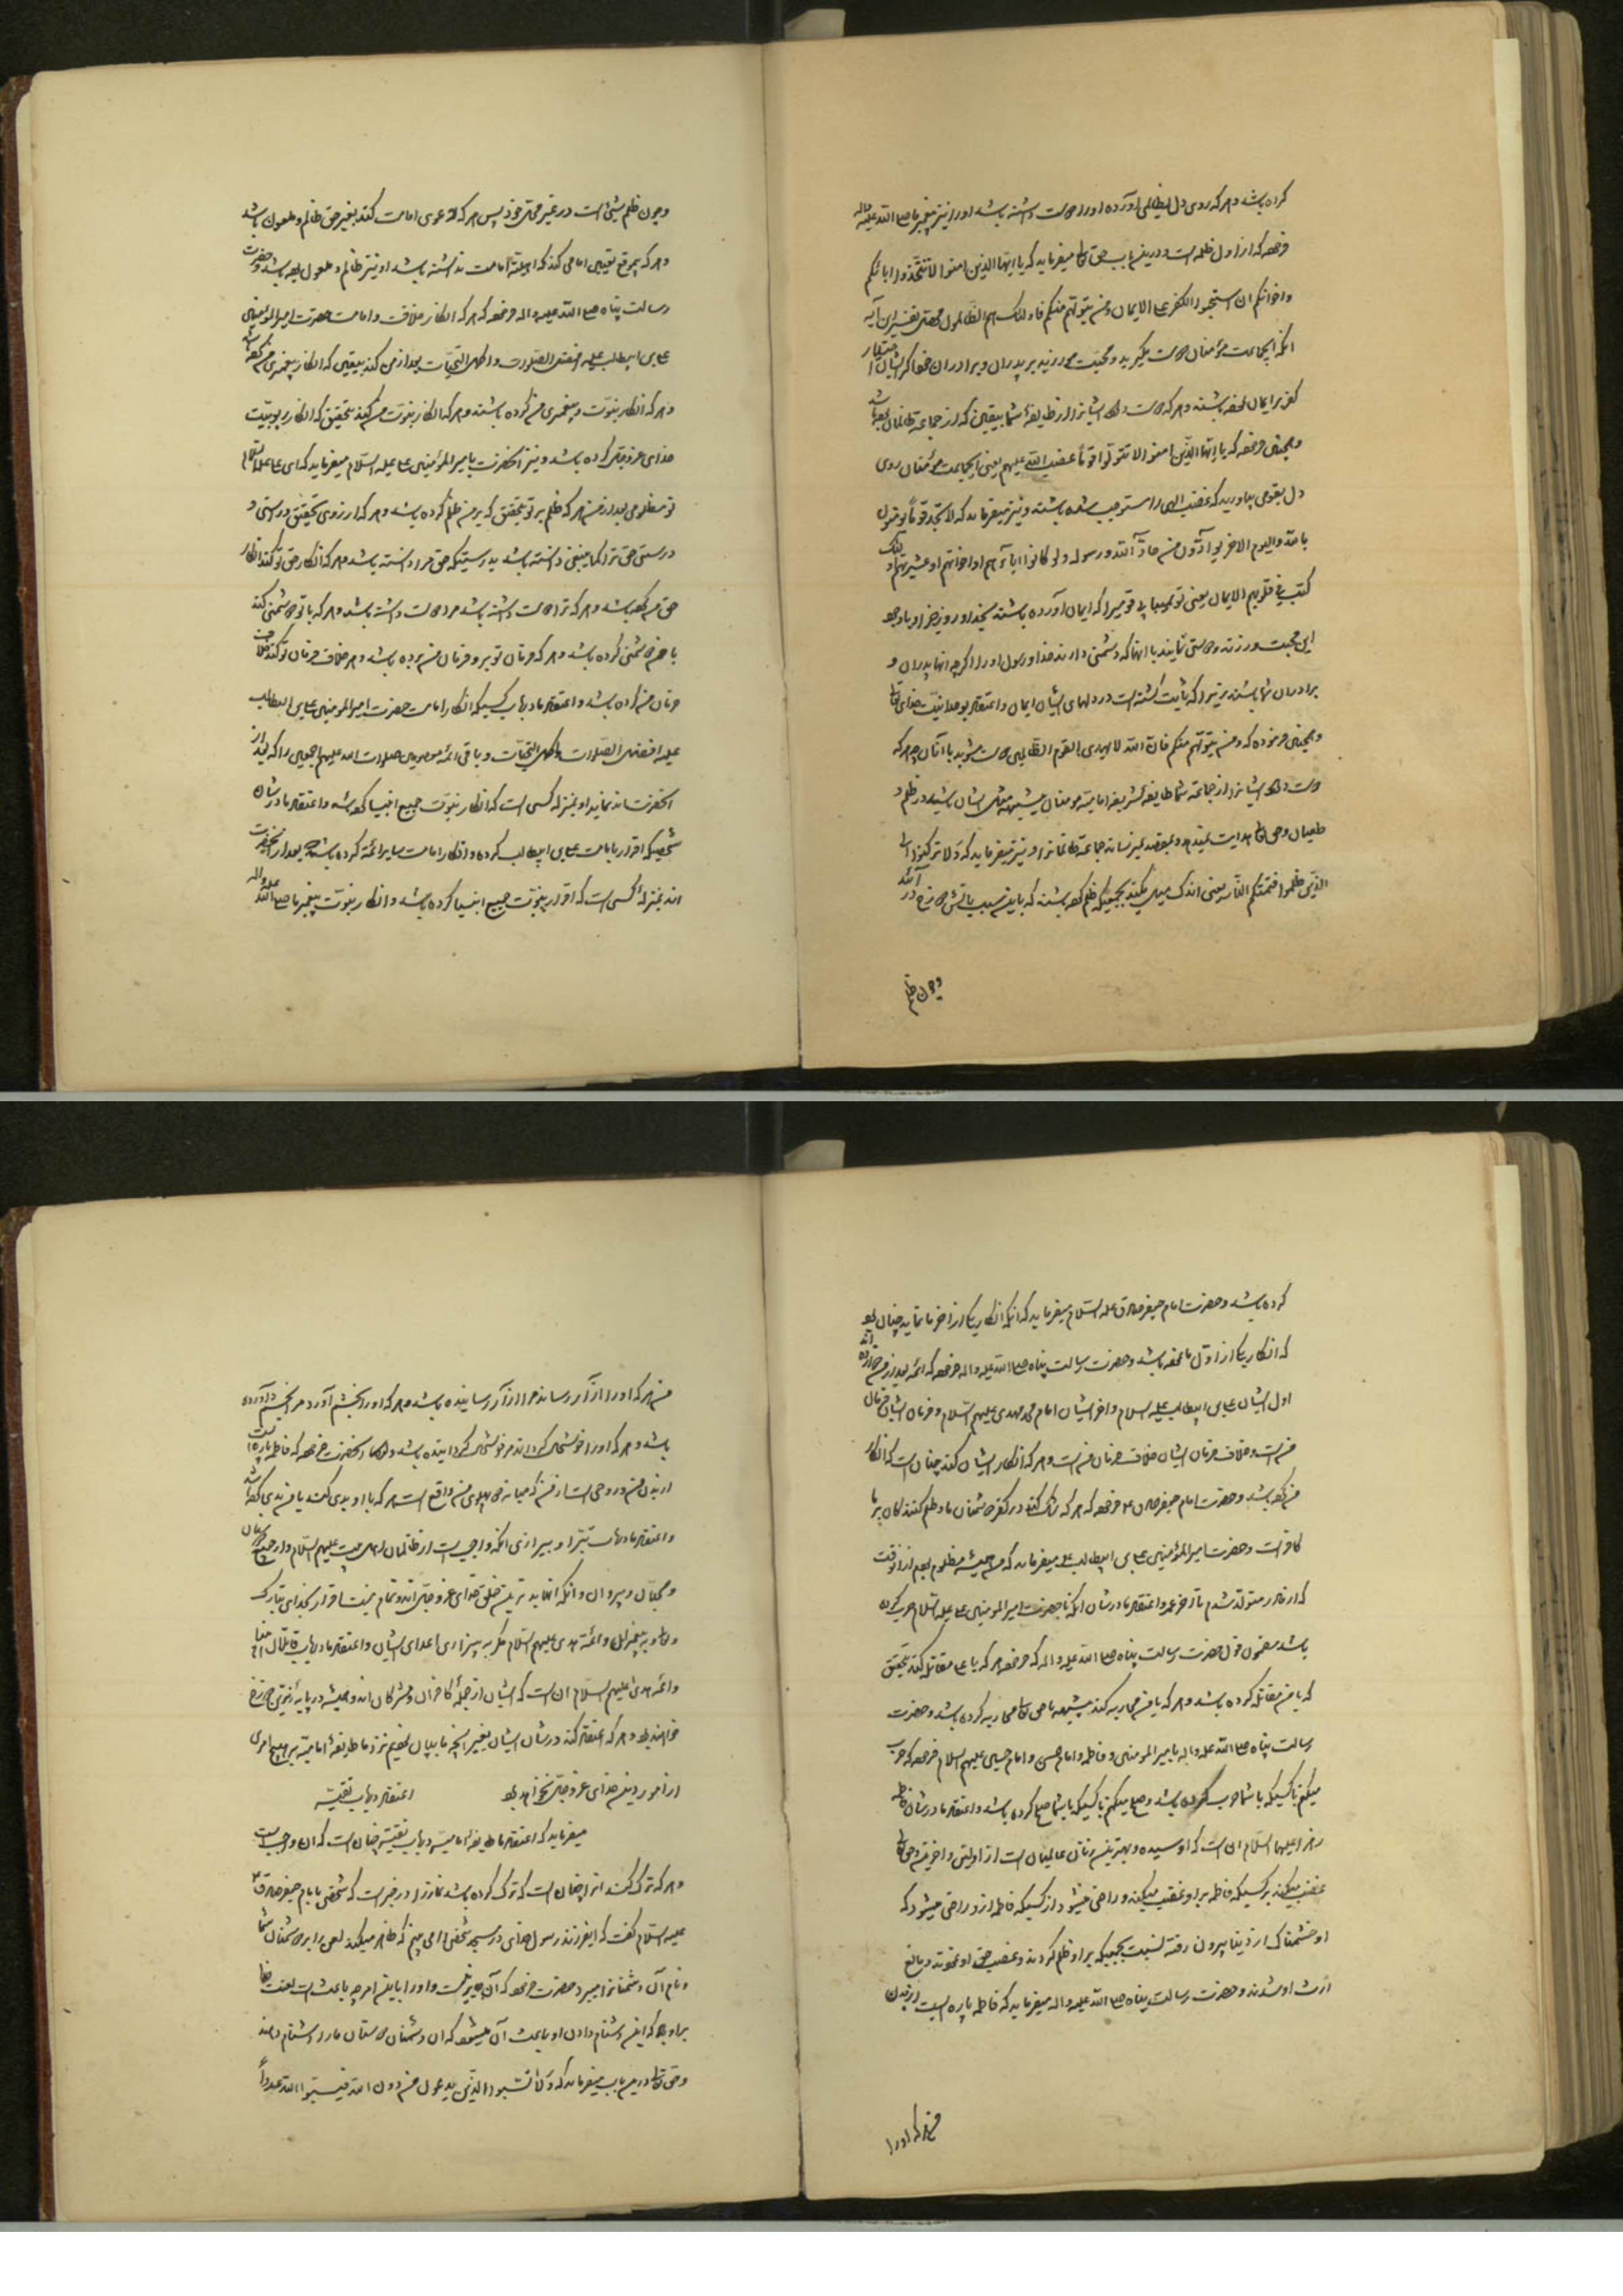 کرده باشد و هر که روی دل بظالمی آورده او را دوست داشته باشد او را نیز پیغمبر ما صلی الله علیه و اله
فرموده که از اول ظلمه است و درین باب حق تعالی میفرماید که یا ایها الذین امنوا لا تتخذوا ابائکم
و اخوانکم ان استحبوا الکفر علی الایمان و من یتولهم منکم فاولئک هم الظالمون تفسیر این آیه
آنکه ایجماعت مؤمنان دوست مگیرید و محبت مورزید بر پدران و برادران خود اگر ایشان اختیار
کفر بر ایمان نموده باشند و هر که دوست دارد ایشانرا از طایفهٔ شما بیقین که از جماعهٔ ظالمان بوده باشد
و همچنین فرموده که یا ایها الذین امنوا لا تتولوا قوماً غضب الله علیهم یعنی ایجماعت مؤمنان روی
دل بقومی میاورید که غضب الهی را مستوجب شده باشند و نیز میفرماید که لا تجد قوماً یؤمنون
بالله والیوم الاخر یوادّون من حادّ الله ورسوله ولو کانوا اباءهم او اخوانهم او عشیرتهم اولئک
کتب فی قلوبهم الایمان یعنی تو نمییابی قومیرا که ایمان آورده باشند بخدا و روز جزا و با وجود
این محبت ورزند و دوستی نمایند با انها که دشمنی دارند خدا و رسول او را اگرچه انها پدران و
برادران شما باشند زیرا که ثابت گشته است در دلهای ایشان ایمان و اعتقاد بوحدانیت خدای تعالی
و همچنین فرموده که و من یتولهم منکم فانّ الله لا یهدی القوم الظالمین دوست مشوید با آنان چه هر که
دوست دارد ایشانرا از جماعهٔ شما طایفهٔ شریفهٔ امامیه مؤمنان بیشبهه مثل ایشان باشد در ظلم و
طغیان و حق تعالی هدایت نمیدهد و بمقصد نمیرساند جماعهٔ ظالمانرا و نیز میفرماید که ولا ترکنوا الی
الذین ظلموا فتمسکم النار یعنی اندک میل مکنید بجمعیکه ظلم کرده باشند که باین سبب باتش دوزخ در آئید
و چون ظلم
و چون ظلم شیئی است در غیر محل خود پس هر که دعوی امامت کند بغیر حق ظالم و ملعون باشد
و هر که بموقع تعیین امامی کند که اهلیت امامت نداشته باشد او نیز ظالم و ملعون بوده باشد و حضرت
رسالت پناه صلی الله علیه و اله فرموده که هر که انکار خلافت و امامت حضرت امیرالمؤمنین
علی بن ابیطالب علیه افضل الصلوات و اکمل التحیات بعد از من کند بیقین که انکار پیغمبری من کرده باشد
و هر که انکار نبوت و پیغمبری من کرده باشد و هر که انکار نبوت من کند بتحقیق که انکار ربوبیّت
خدای عزوجل کرده باشد و نیز آنحضرت بامیرالمؤمنین علی علیه السلام میفرماید که ای علی علیه السلام
تو مظلومی بعد از من هر که ظلم بر تو بتحقیق که بر من ظلم کرده باشد و هر که از روی تحقیق و راستی و
درستی حق ترا کما ینبغی دانسته باشد بدرستیکه حق مرا دانسته باشد و هر که انکار حق تو کند انکار
حق من کرده باشد و هر که ترا دوست داشته باشد مرا دوست داشته باشد و هر که با تو دشمنی کند
با من دشمنی کرده باشد و هر که فرمان تو برد فرمان من برده باشد و هر خلاف فرمان تو کند خلاف
فرمان من کرده باشد و اعتقاد ما در باب کسیکه انکار امامت حضرت امیرالمومنین علی بن ابیطالب
علیه افضل الصلوات و اکمل التحیات و باقی ائمهٔ معصومین صلوات الله علیهم اجمعین را که بعد از
آنحضرتند نماید او بمنزلهٔ کسی است که انکار نبوت جمیع انبیا کرده باشد و اعتقاد ما در شان
شخصیکه اقرار بامامت علی بن ابیطالب کرده و انکار امامت سایر ائمه کرده باشد بعد از آنحضرت
اند بمنزلهٔ کسی است که اقرار بنبوت جمیع انبیا کرده باشد و انکار نبوت پیغمبر ما صلی الله علیه و اله
کرده باشد و حضرت امام جعفر صادق علیه السلام میفرماید که انکه انکار یکی از اخر ما نماید چنان بود
که انکار یکی از اول ما نموده باشد و حضرت رسالت پناه صلی الله علیه و اله فرموده که ائمه بعد از من دوازده اند
اول ایشان علی بن ابیطالب علیه السلام و اخر ایشان امام محمد مهدی علیهم السلام و فرمان ایشان فرمان
من است و خلاف فرمان ایشان خلاف فرمان من است و هر که انکار ایشان کند چنان است که انکار
من کرده باشد و حضرت امام جعفر صادق ع فرموده که هر که شک کند در کفر دشمنان ما و ظلم کنندکان بر ما
کافر است و حضرت امیرالمؤمنین علی بن ابیطالب علیه میفرماید که من همیشه مظلوم بودم از انوقت
که از مادر متولد شدم تا آخر عمر و اعتقاد ما در شان آنکه با حضرت امیرالمومنین علی علیه السلام حرب کرده
باشد مضمون قول حضرت رسالت پناه صلی الله علیه و اله که فرموده هر که با علی مقاتله کند بتحقیق
که با من مقاتله کرده باشد و هر که با من محاربه کند بیشبهه با حق تعالی محاربه کرده باشد و حضرت
رسالت پناه صلی الله علیه و اله بامیرالمومنین و فاطمه و امام حسن و امام حسین علیهم السلام فرموده که حرب
میکنم با کسیکه با شما حرب کرده باشد و صلح میکنم با کسیکه با شما صلح کرده باشد و اعتقاد ما در شان فاطمه
زهرا علیها السلام آن است که او سیده و بهترین زنان عالمیان است از اولین و اخرین و حق تعالی
غضب میکند بر کسیکه فاطمه بر او غضب میکند و راضی میشود از کسیکه فاطمه ازو راضی میشود که
او خشمناک از دنیا بیرون رفته نسبت بجمعیکه بر او ظلم کردند و غصب حق او نمودند و مانع
ارث او شدند و حضرت رسالت پناه صلی الله علیه و اله میفرماید که فاطمه پاره ایست از بدن
من هر که او را
من هر که او را آزار رساند مرا آزار رسانیده باشد و هر که او را بخشم آورد مرا بخشم آورده
باشد و هر که او را خوشحال کرداند مرا خوشحال کردانیده باشد و آنحضرت فرموده که فاطمه پاره ایست
از بدن من و روحی است از من که میانه دو پهلوی من واقع است هر که با او بدی کند با من بدی کرده باشد
و اعتقاد ما در باب تبرا و بیزاری آنکه واجب است از ظالمان اهل بیت علیهم السلام و از جمیع
و محبّان و پیروان و آنکه انها بدترین خلق خدای عزوجل اند و تمام نیست اقرار بخدای تبارک
و تعالی و به پیغمبران و ائمهٔ هدی علیهم السلام مکر به بیزاری اعدای ایشان و اعتقاد ما در باب قاتلان انبیا
و ائمه هدی علیهم السلام ان است که ایشان از جملهٔ کافران و مشرکان اند و همیشه در پایه زیرین دوزخ
خواهند بود و هر که اعتقاد کند در شان ایشان بغیر آنچه ما بیان کردیم نزد ما طایفهٔ امامیه بر هیچ امری
از امور دین خدای عزوجل نخواهد بود اعتقاد در باب تقیّه
میفرماید که اعتقاد ما طایفهٔ امامیه در باب تقیه چنان است که ان واجب است
و هر که ترک کند انرا چنان است که ترک کرده باشد نماز را در خبر است که شخصی بامام جعفر صادق ع
علیه السلام گفت که ای فرزند رسول خدای در مسجد شخصی را می بینم که ظاهر میکند لعن را بر دشمنان شما
و نام آن دشمنانرا میبرد حضرت فرمود که آن چیزیست و او را باین امر چه باعث است لعنت خدا
بر او باد که این دشنام دادن او باعث آن میشود که ان دشمنان دوستان ما را دشنام دهند
و حق تعالی درین باب میفرماید که ولا تسبوا الذین یدعون من دون الله فیسبوا الله عدواً